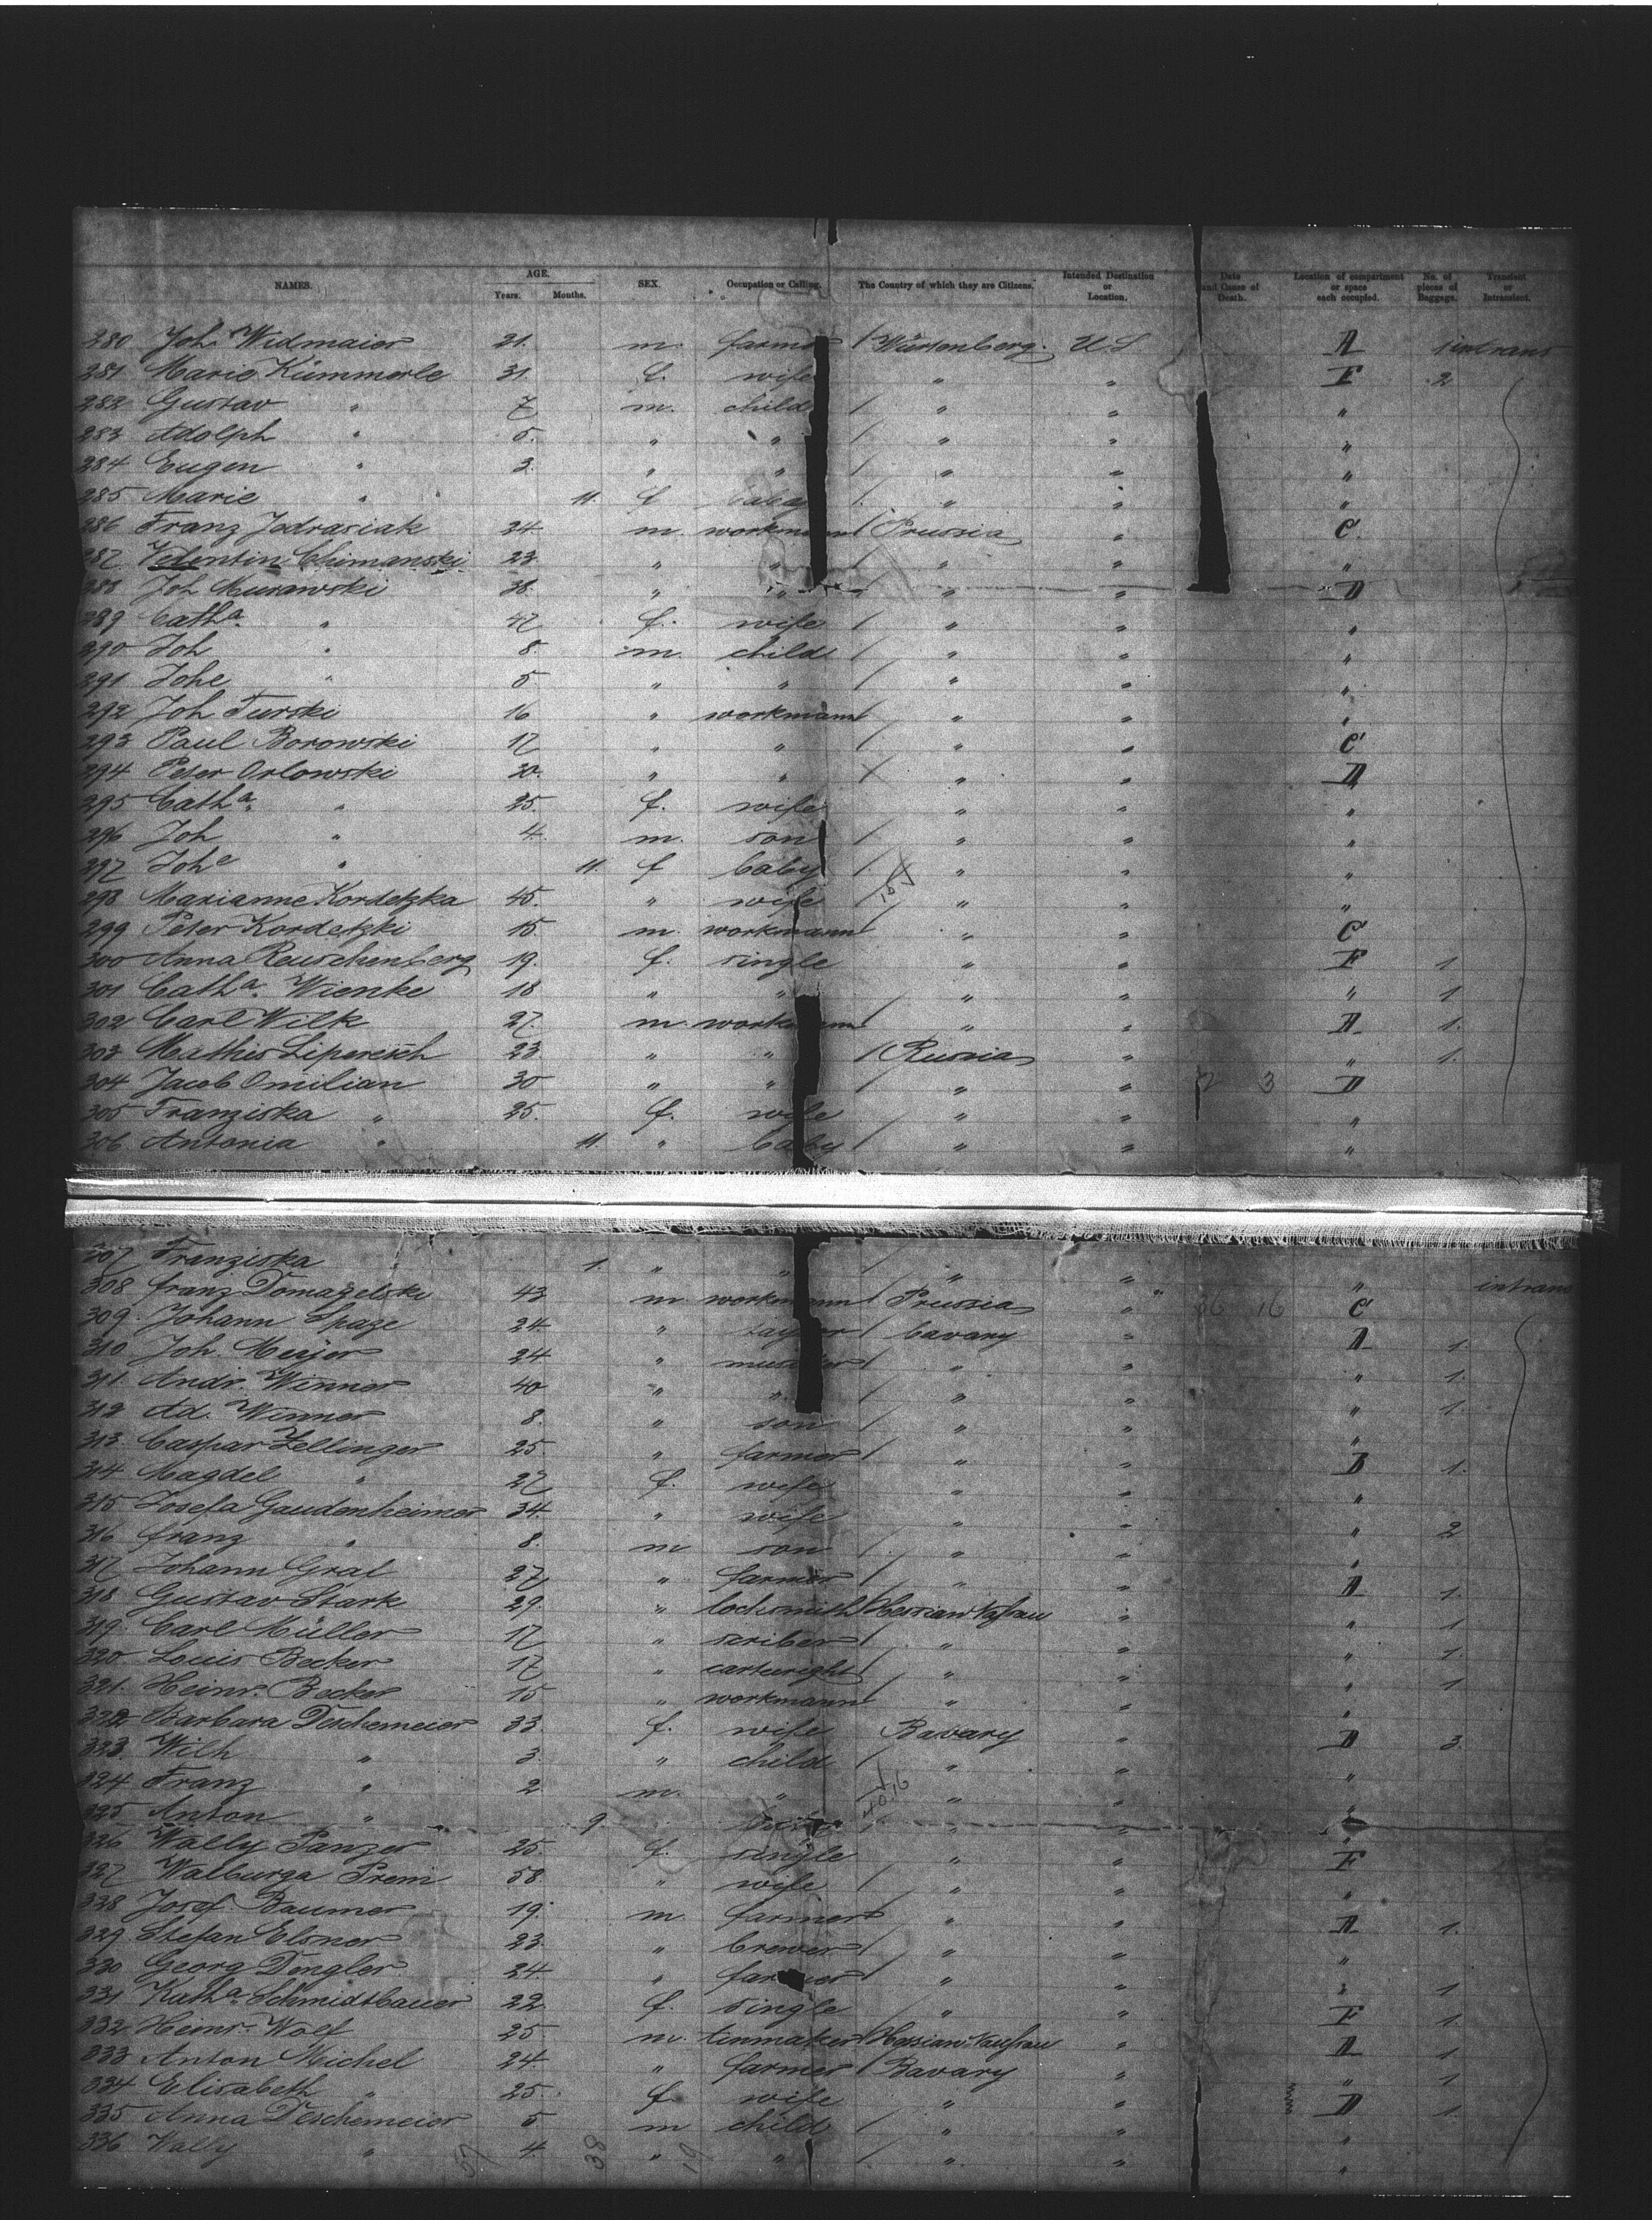 NAMES. AGE. Years. Months. SEX. Occupation or Calling. The Country of which they are Citizens. Intended Destination or Location. Date and Cause of Death. Location of compartment or space each occupied. No. of pieces of Baggage. Transient or Intransient.
280 Joh. Widmaier 21. m. farmer / Würtenberg. U.S. A 1 intrans
281 Marie Kümmerle 31. f. wife " " F 2
282 Gustav " 7 m. child / " " "
283 Adolph " 5. " " / " " "
284 Eugen " 3. " " / " " "
285 Marie " 11. f baby / " " "
286 Franz Jedrasiak 24. m. workmann / Prussia " C.
287 Valentin Chimanski 23. " " / " " "
288 Joh Murawski 38. " " / " " D
289 Catha. " 42 f. wife / " " "
290 Joh " 8. m. child / " " "
291 Johe " 5 " " / " " "
292 Joh Turski 16 " workmann / " " "
293 Paul Borowski 17 " " / " " C
294 Peter Orlowski 30. " " / " " D
295 Catha. " 25. f. wife " " "
296 Joh " 4. m. son / " " "
297 Johe " 11. f baby / " " "
298 Marianne Kordetzka 45. " wife / " " "
299 Peter Kordetzki 15 m. workmann / " " C
300 Anna Reuschenberg 19. f. single " " F 1
301 Catha. Wienke 18 " " / " " " 1
302 Carl Wilk 27. m. workmann / " " A 1.
303 Mathis Liperisch 23 " " / Russia " " 1.
304 Jacob Omilian 30 " " / " " 3 D
305 Franziska " 25. f. wife " " "
306 Antonia " 11. " baby / " " "
307 Franziska 1. " " / " " "
308 franz Domazelski 43 m. workmann / Prussia " 36 16 C intrans
309. Johann Spaze 24. " taylor / bavary " A 1.
310 Joh. Meijer 24 " / " " " 1.
311. Andr. Winner 40 " " / " " " 1.
312 Ad. Winner 8. " son / " " "
313. Caspar Zellinger 25. " farmer / " " D 1.
314 Magdel " 27 f. wife " " "
315 Josefa Gaudenheimer 34. " wife " " " 2
316 franz " 8. m son / " " "
317 Johann Graf 27 " farmer / " " A 1.
318 Gustav Stark 29. " locksmith / Hessian Naßau " " 1
319. Carl Müller 17 " scriber / " " " 1.
320 Louis Becker 17 " cartwright / " " " 1
321. Heinr. Becker 15 " workmann / " " "
322 Barbara Deschemeier 33 f. wife Bavary " D 3.
323. Wilh " 3. " child / " " "
324 Franz " 2 m. " " " "
325 Anton " 9 / " "
326 Wally Panzer 25 f. single " " F
327 Walburga Prem 58 " wife / " " "
328 Josef Baumer 19. m farmer " " A 1.
329 Stefan Elsner 23 " brewer / " " "
330 Georg Dengler 24. " farmer / " " " 1
331 Katha. Schmidtbauer 22. f. single " " F 1.
332 Heinr. Wolf 25 m. tinmaker / Hessian Naußau " A 1
333 Anton Michel 24. " farmer / Bavary " " 1
334 Elisabeth " 25. f wife " " D 1.
335 Anna Deschemeier 5 m child / " " "
336 Wally " 4. " " / " " "
38 19